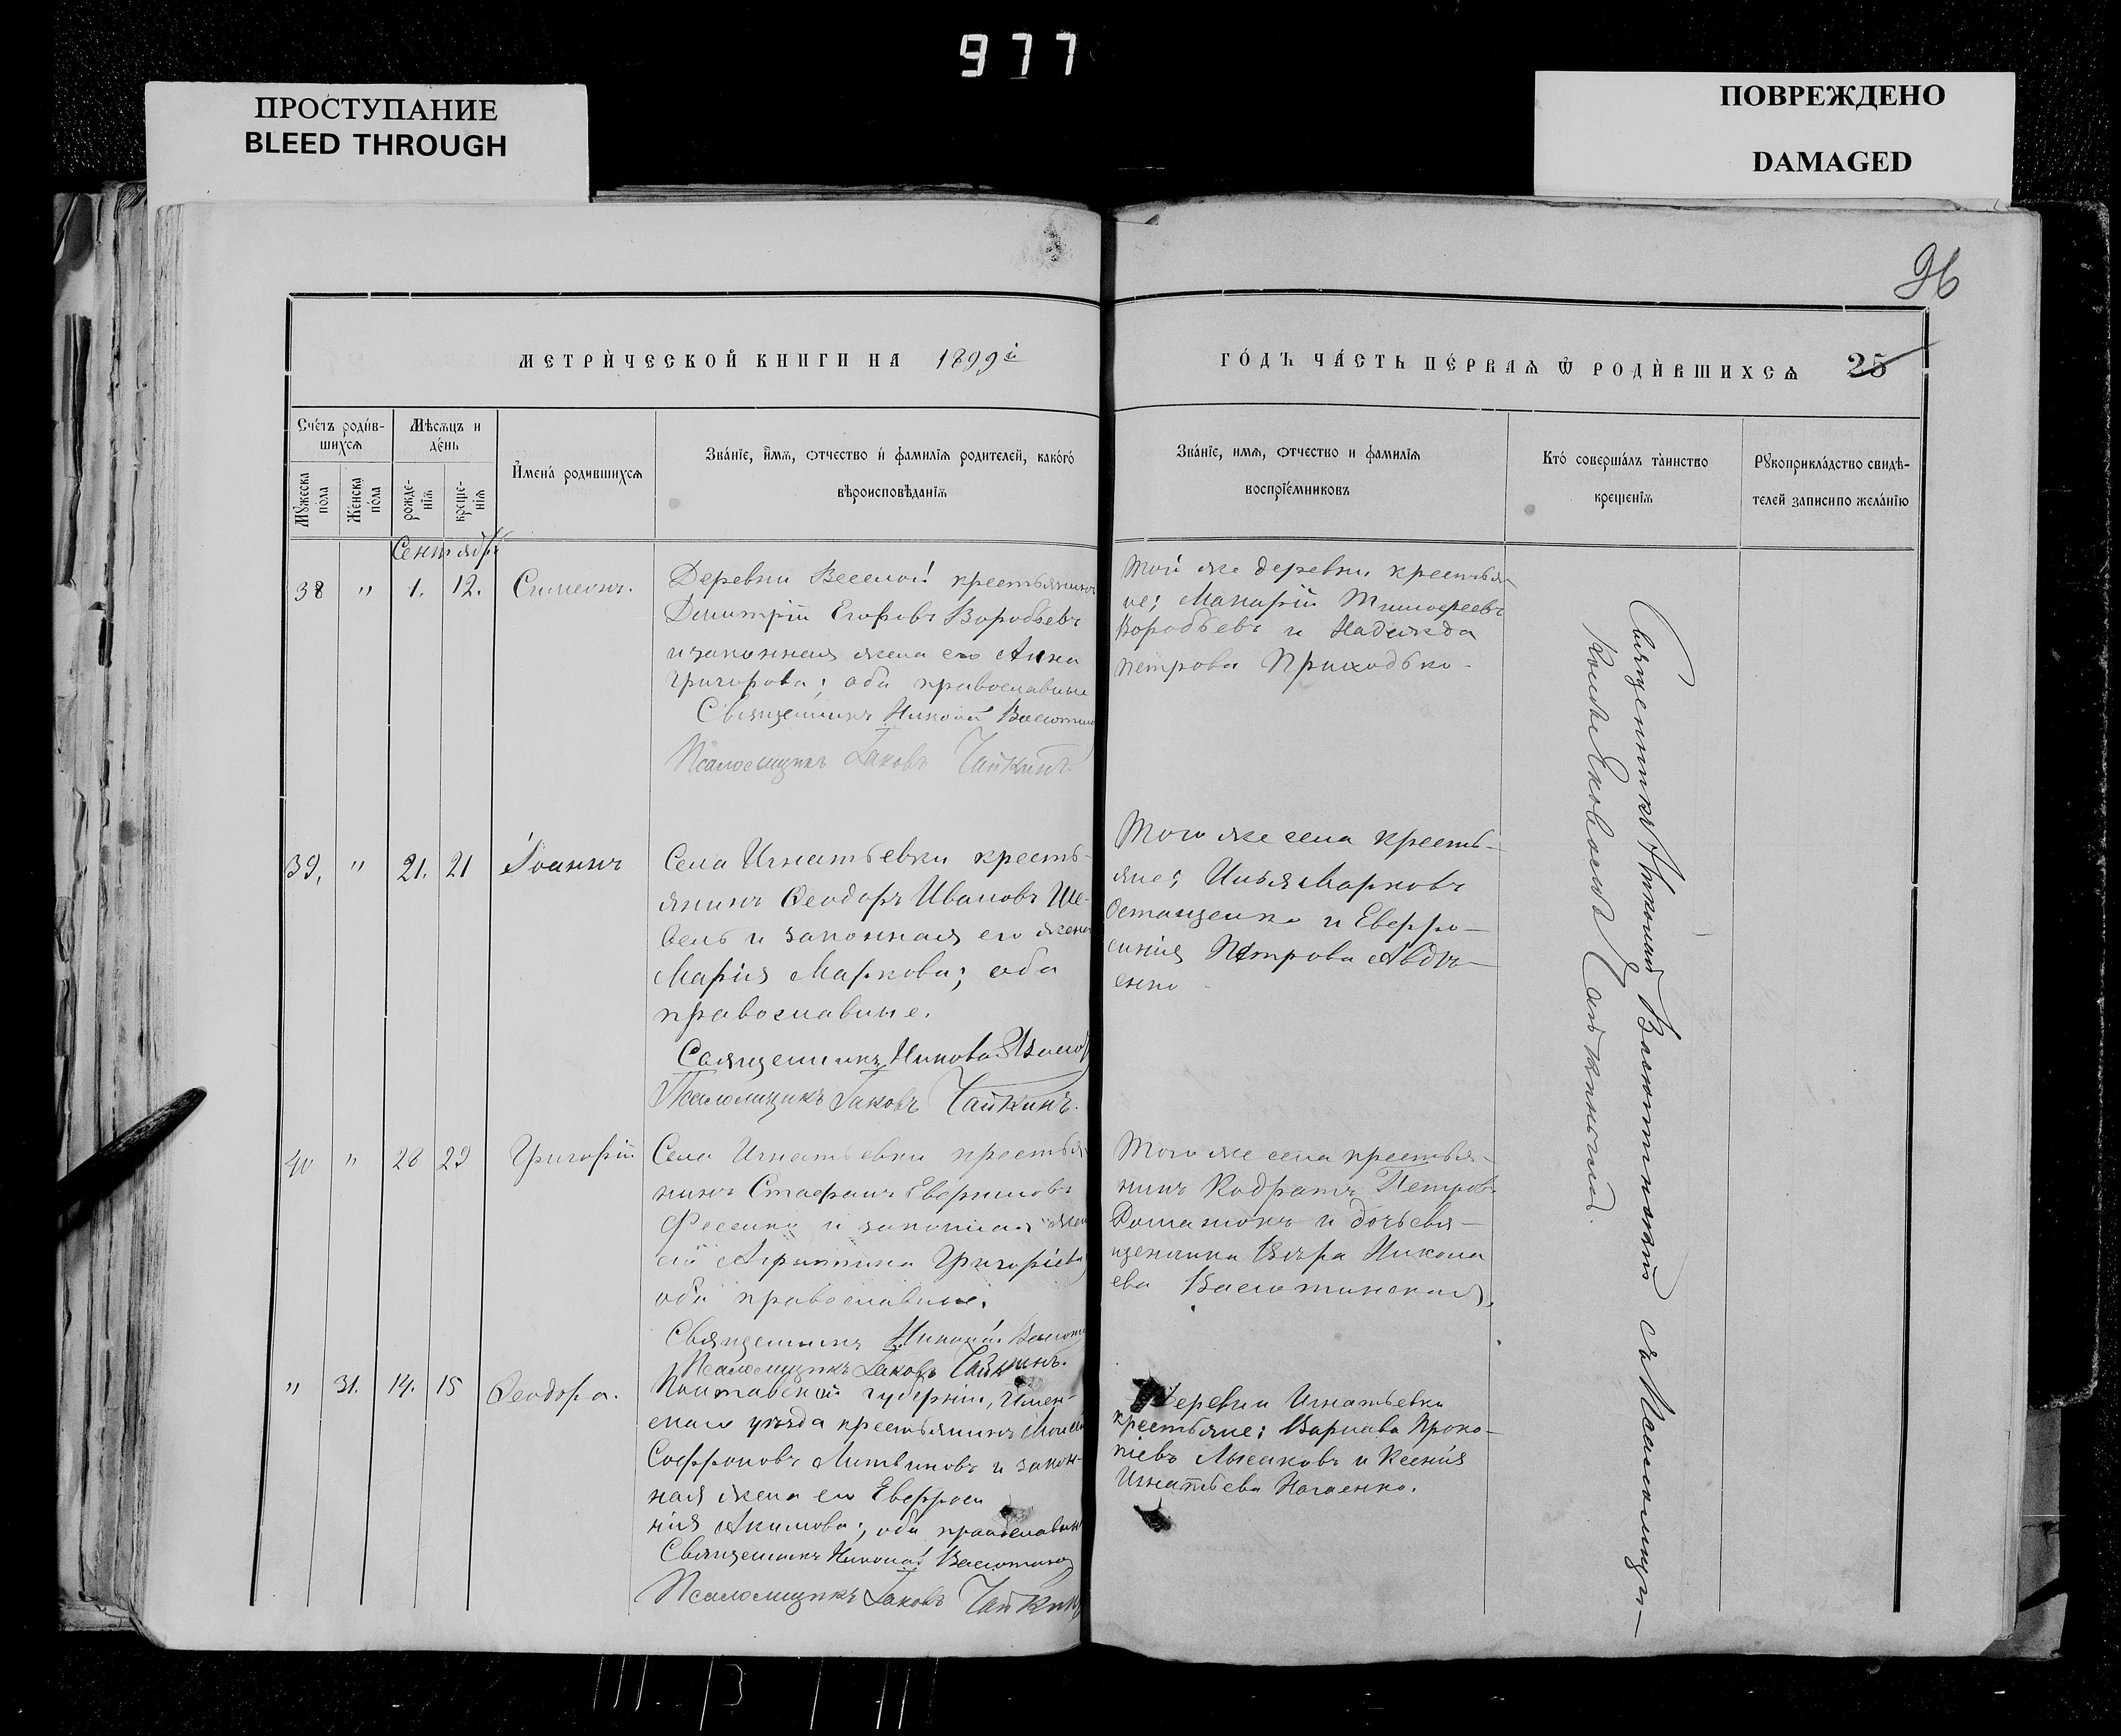 977
ПРОСТУПАНИЕ
BLEED THROUGH
ПОВРЕЖДЕНО
DAMAGED
96
МЕТРИ́ЧЕСКОЙ КНИГИ НА 1899й
ГО́ДЪ ЧА́СТЬ ПЕ́РВАѦ Ѿ РОДИ́ВШИХСѦ 25
Сче́тъ роди́в-
шихсѧ
Мꙋ́жеска пола
Же́нска по́ла
Мѣ́сѧцъ и
де́нь
рожде-
нїѧ
креще-
нїѧ
И҆мена́ родившихсѧ
Зва́нїе, и҆́мѧ, ѻтчество и҆ фамилїѧ родителей, како́го
вѣроисповѣ́данїѧ
Зва́нїе, имѧ, ѻтчество и фамилїѧ
воспрїе́мниковъ
Кто́ соверша́лъ та́инство
креще́нїѧ
Рꙋкоприкла́дство свидѣ́-
телей записи по жела́нїю
Сентябрь
38 " 1. 12. Симеонъ.
Деревни Веселой крестьянинъ
Димитрій Егоровъ Воробьевъ
и законная жена его Анна
Григорова; оба православные
Священникъ Николай
Псаломщикъ Іаковъ Чайкинъ
Той же деревни крестья-
не; Макарій Тимофеевъ
Воробьевъ и Надежда
Петрова Приходько.
39, " 21. 21 Іоаннъ
Села Игнатьевки кресть-
янинъ Ѳеодоръ Ивановъ Ше-
вель и законная его жена
Марія Маркова; оба
православные.
Священникъ Николай
Псаломщикъ Іаковъ Чайкинъ.
Того же села кресть-
яне; Илья Марковъ
Остащенко и Евфро-
синія Петрова Авдѣ-
енко
40 " 28 29 Григорій
Села Игнатьевки крестья-
нинъ Стефанъ
Фесенко и законная жена
его Григоріева
оба православные.
Священникъ Николай
Псаломщикъ Іаковъ Чайкинъ.
Того же села крестья-
нинъ Кодратъ Петровъ
и дочь свя-
щенника Вѣра Никола
ева Васютинская.
" 31. 14. 15 Ѳеодора.
Полтавской губерніи,
скаго уѣзда крестьянинъ
Софроновъ Литвиновъ и закон-
ная жена его Евфроси
нія Акимова; оба православные
Священникъ Николай
Псаломщикъ Іаковъ Чайкинъ
Деревни Игнатьевки
крестьяне: Варнава Проко-
піевъ Лысаковъ и Ксенія
Игнатьева Нагаенко.
Священникъ Николай Васютинскій съ Псаломщи-
комъ Яковомъ Чайкинымъ.